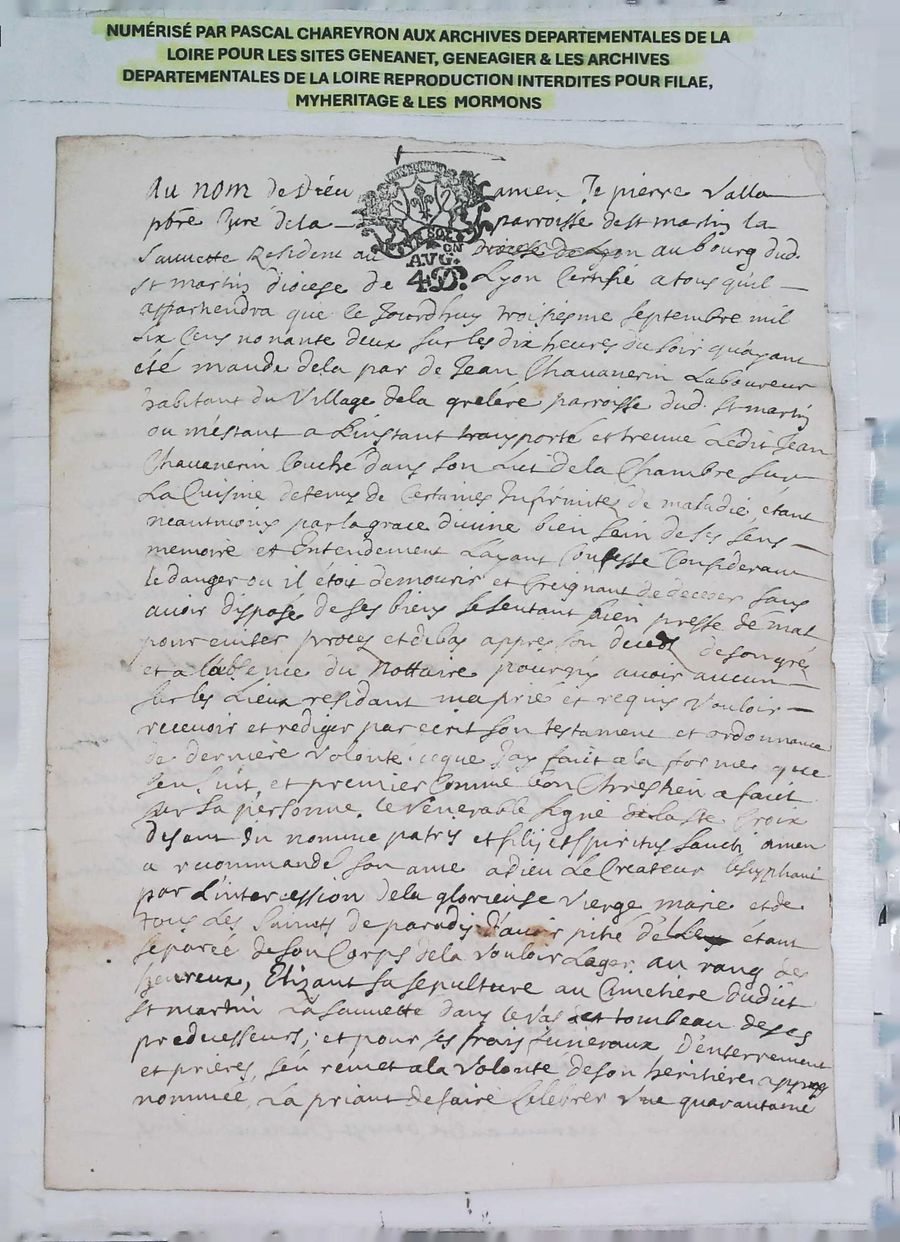 NUMÉRISÉ PAR PASCAL CHAREYRON AUX ARCHIVES DEPARTEMENTALES DE LA
LOIRE POUR LES SITES GENEANET, GENEAGIER & LES ARCHIVES
DEPARTEMENTALES DE LA LOIRE REPRODUCTION INTERDITES POUR FILAE,
MYHERITAGE & LES MORMONS
Au nom de Dieu amen Je pierre Valla
pbre Curé de la parroisse de st martin la
Sauvette Resident au diocese de Lyon au bourg dud.
AVG.
4D.
st martin diocese de Lyon Certifie a tous quil
appartiendra que le Jourdhuy troisiesme septembre mil
six Cens nonante deux sur les dix heures du soir quayant
été mandé dela par de Jean Chavanerin Laboureur
habitant du Village dela grelére parroisse dud. st martin
ou méstant a Linstant transporté et treuvé Ledit Jean
Chavanerin Couché dans son Lict de la Chambre sur
La Cuisine detenus de Certaines Infirmites de maladie, étant
neantmoins par la grace divine bien sein de ses sens
memoire et Entendement Layant Confessé Considerant
le danger ou il étoit de mourir et Creignant de deceder sans
avoir disposé de ses biens se sentant bien pressé de mal
pour eviter procés et debas appres son decés de son gré
et a labsence du nottaire pour nÿ avoir aucun
sur les Lieux residant ma prié et requis Vouloir
recevoir et rediger par ecrit son testament et ordonnance
de derniere Volonté. ceque Jay fait a la forme que
sen suit, et premier Comme bon Chrestien a fait
sur sa personne le Venerable signe de la ste Croix
disant In nomine patris et filij et spiritus sancti amen
a recommandé son ame a dieu Le Createur le supliant
par Lintercession dela glorieuse Vierge marie et de
tous Les Saincts de paradis d'avoir pitié étant
separée de son Corps de la Vouloir Loger au rang des
heureux, Elizant sa sepulture au Cimetiére dudict
st martin La sauvette dans le Vas et tombeau de ses
predecesseurs; et pour ses frais funeraux D'enterrement
et priéres, sén remet a la Volonté de son heritiére appres
nommée, La priant de faire Celebrer Une quarantaine